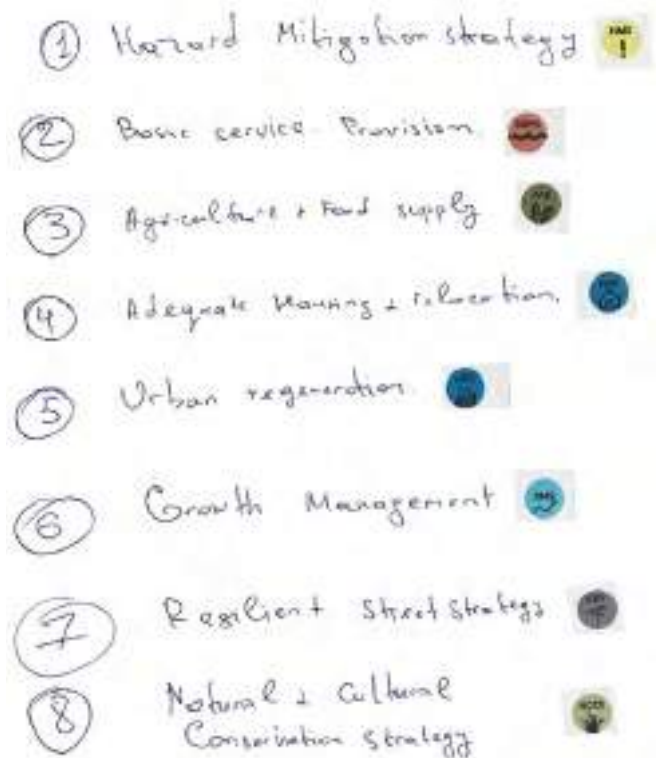 1 Hazard Mitigation strategy !
2 Basic service Provision
3 Agriculture + Food supply
4 Adequate Housing + relocation
5 Urban regeneration
6 Growth Management
7 Resilient Street Strategy
8 Natural + Cultural
Conservation Strategy